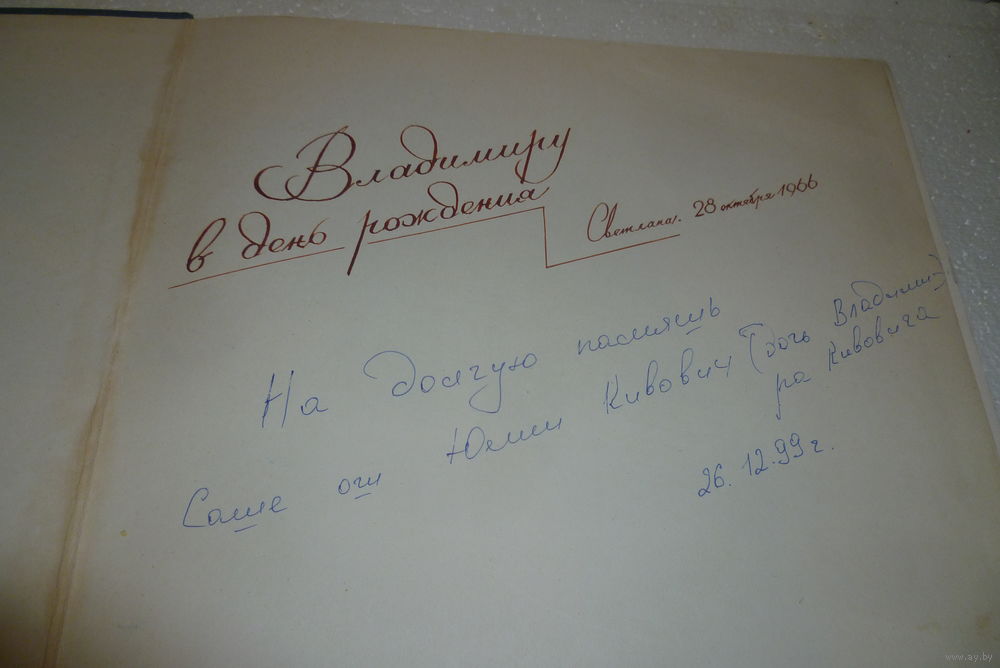 Владимиру
в день рождения
Светлана. 28 октября 1966
На долгую память
Саше от Юлии Кивович (дочь Владими-
ра Кивовича
26.12.99 г.
www.ay.by